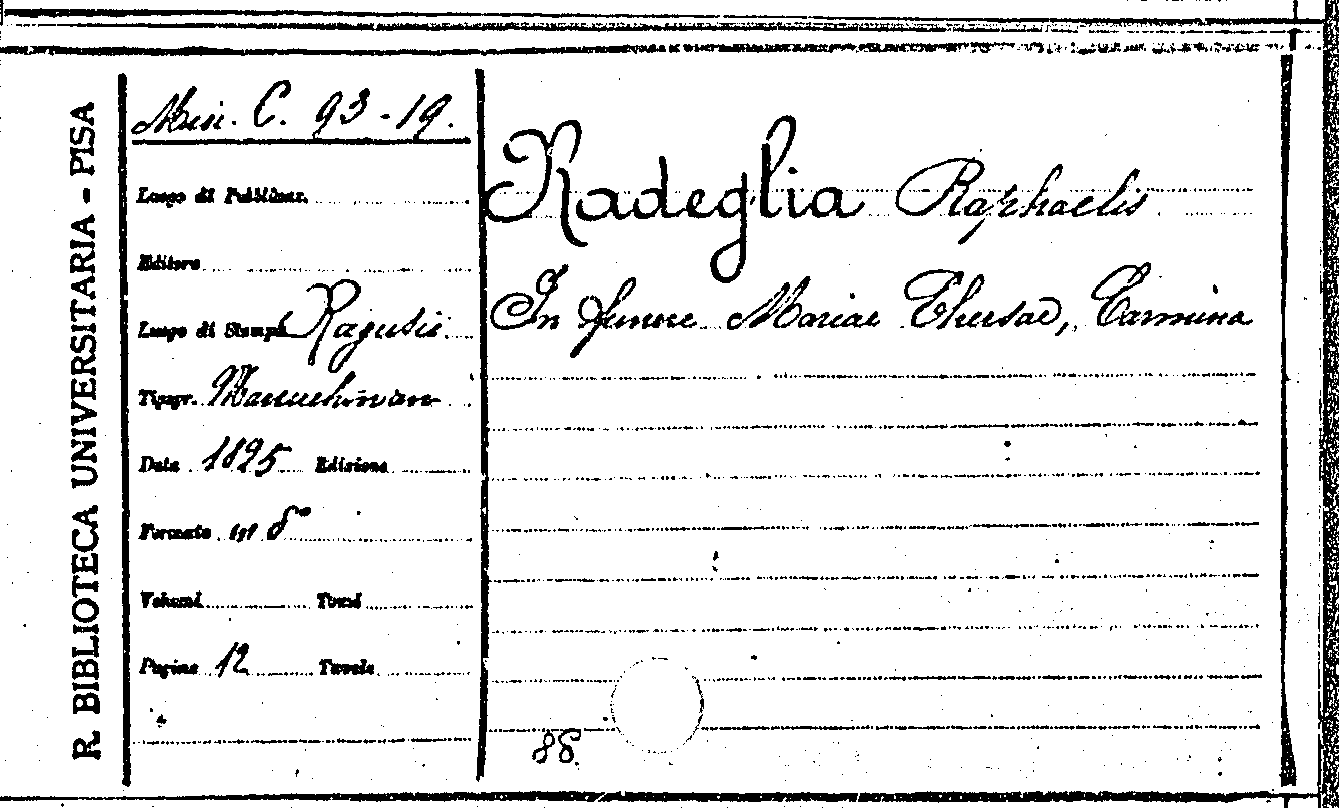 R. BIBLIOTECA UNIVERSITARIA - PISA
Misc. C. 93-19.
Luogo di Pubblicaz.
Editore
Luogo di Stampa Ragusis
Tipogr.
Data 1895 Edizione
Formato in 8°
Volumi Tomi
Pagine 12 Tavole
Radeglia Raphaelis
In funere Mariae Thersae, Carmina
88